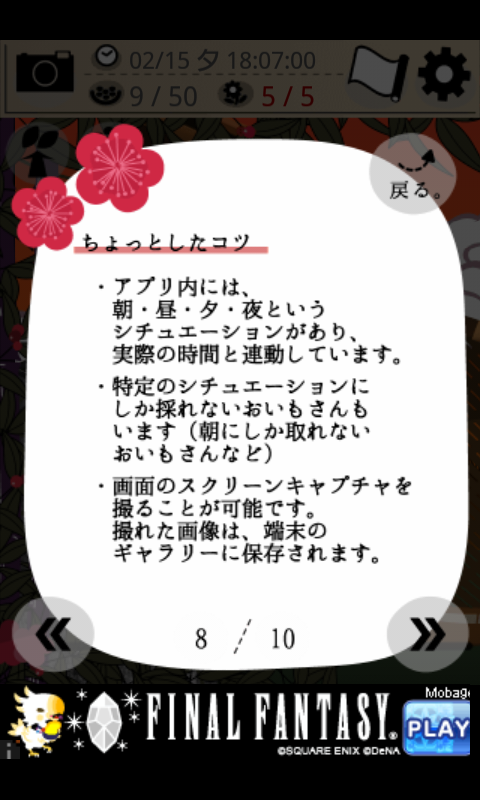 02/15 夕 18:07:00
9 / 50
5 / 5
戻る。
ちょっとしたコツ
・アプリ内には、
朝・昼・夕・夜という
シチュエーションがあり、
実際の時間と連動しています。
・特定のシチュエーションに
しか採れないおいもさんも
います（朝にしか取れない
おいもさんなど）
・画面のスクリーンキャプチャを
撮ることが可能です。
撮れた画像は、端末の
ギャラリーに保存されます。
8 / 10
Mobage
FINAL FANTASY®
PLAY
©SQUARE ENIX ©DeNA